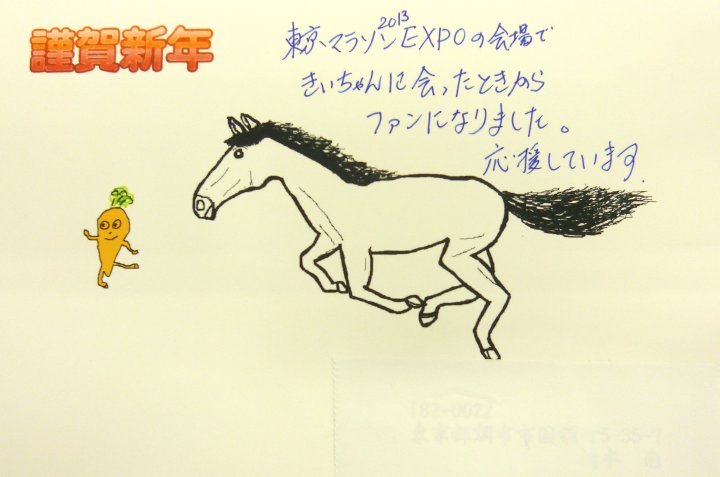 謹賀新年
東京マラソン2013EXPOの会場で
きいちゃんに会ったときから
ファンになりました。
応援しています。
182-0022